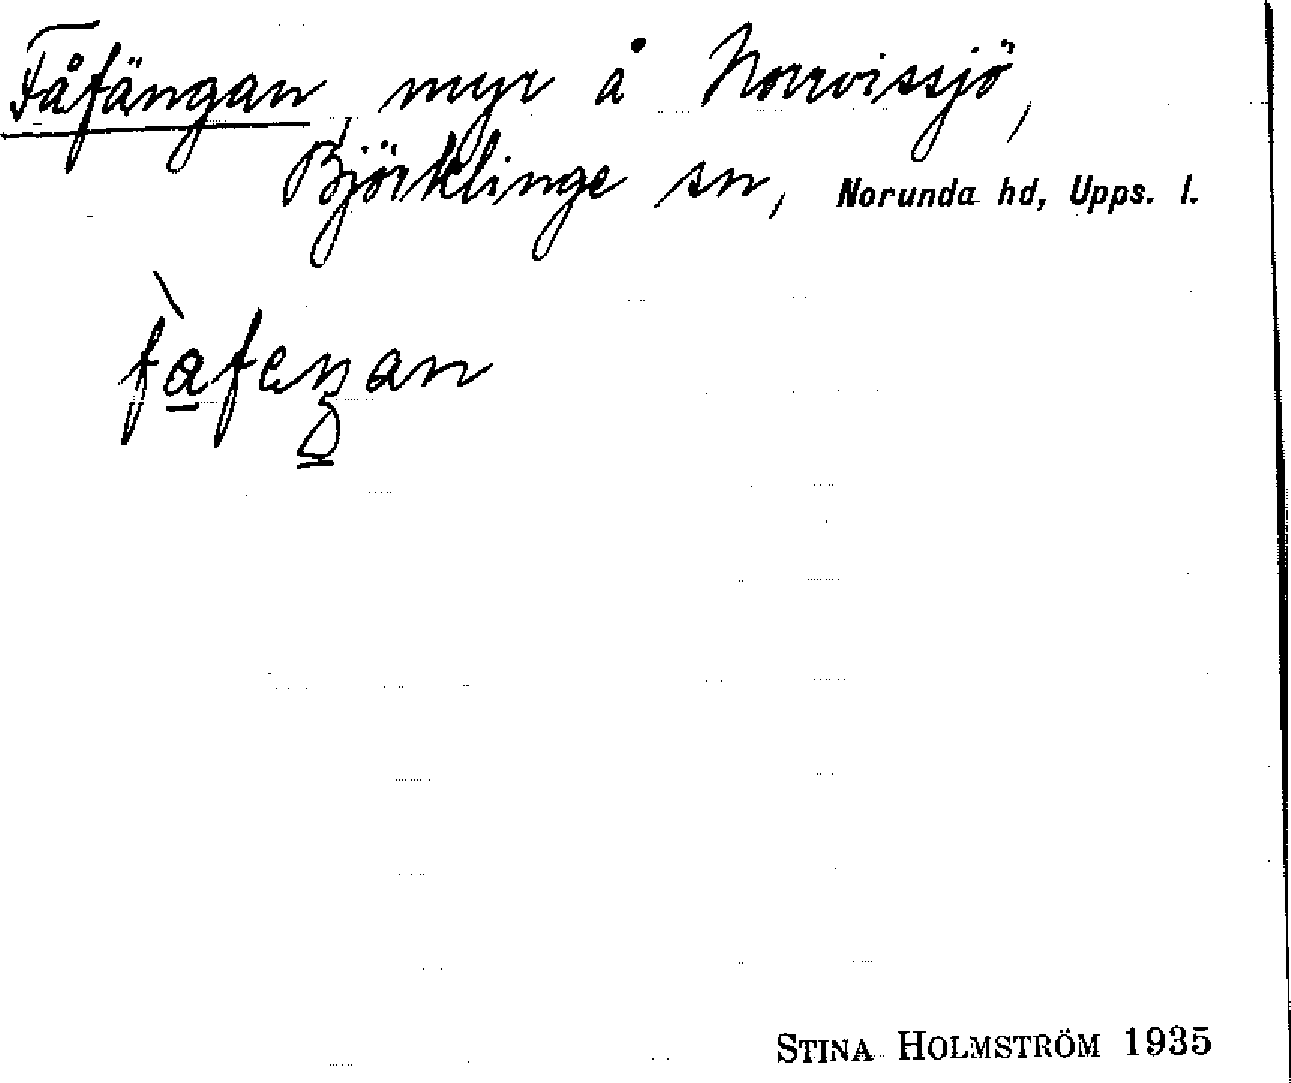 Fåfängan, myr å Norrvissjö,
Björklinge sn, Norunda hd, Upps. l.
fàfeŋan
STINA HOLMSTRÖM 1935